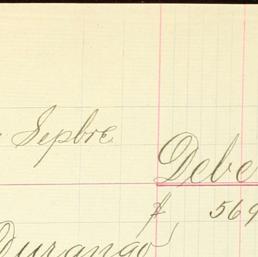 Sepbre
Debe
$ 569
Durango